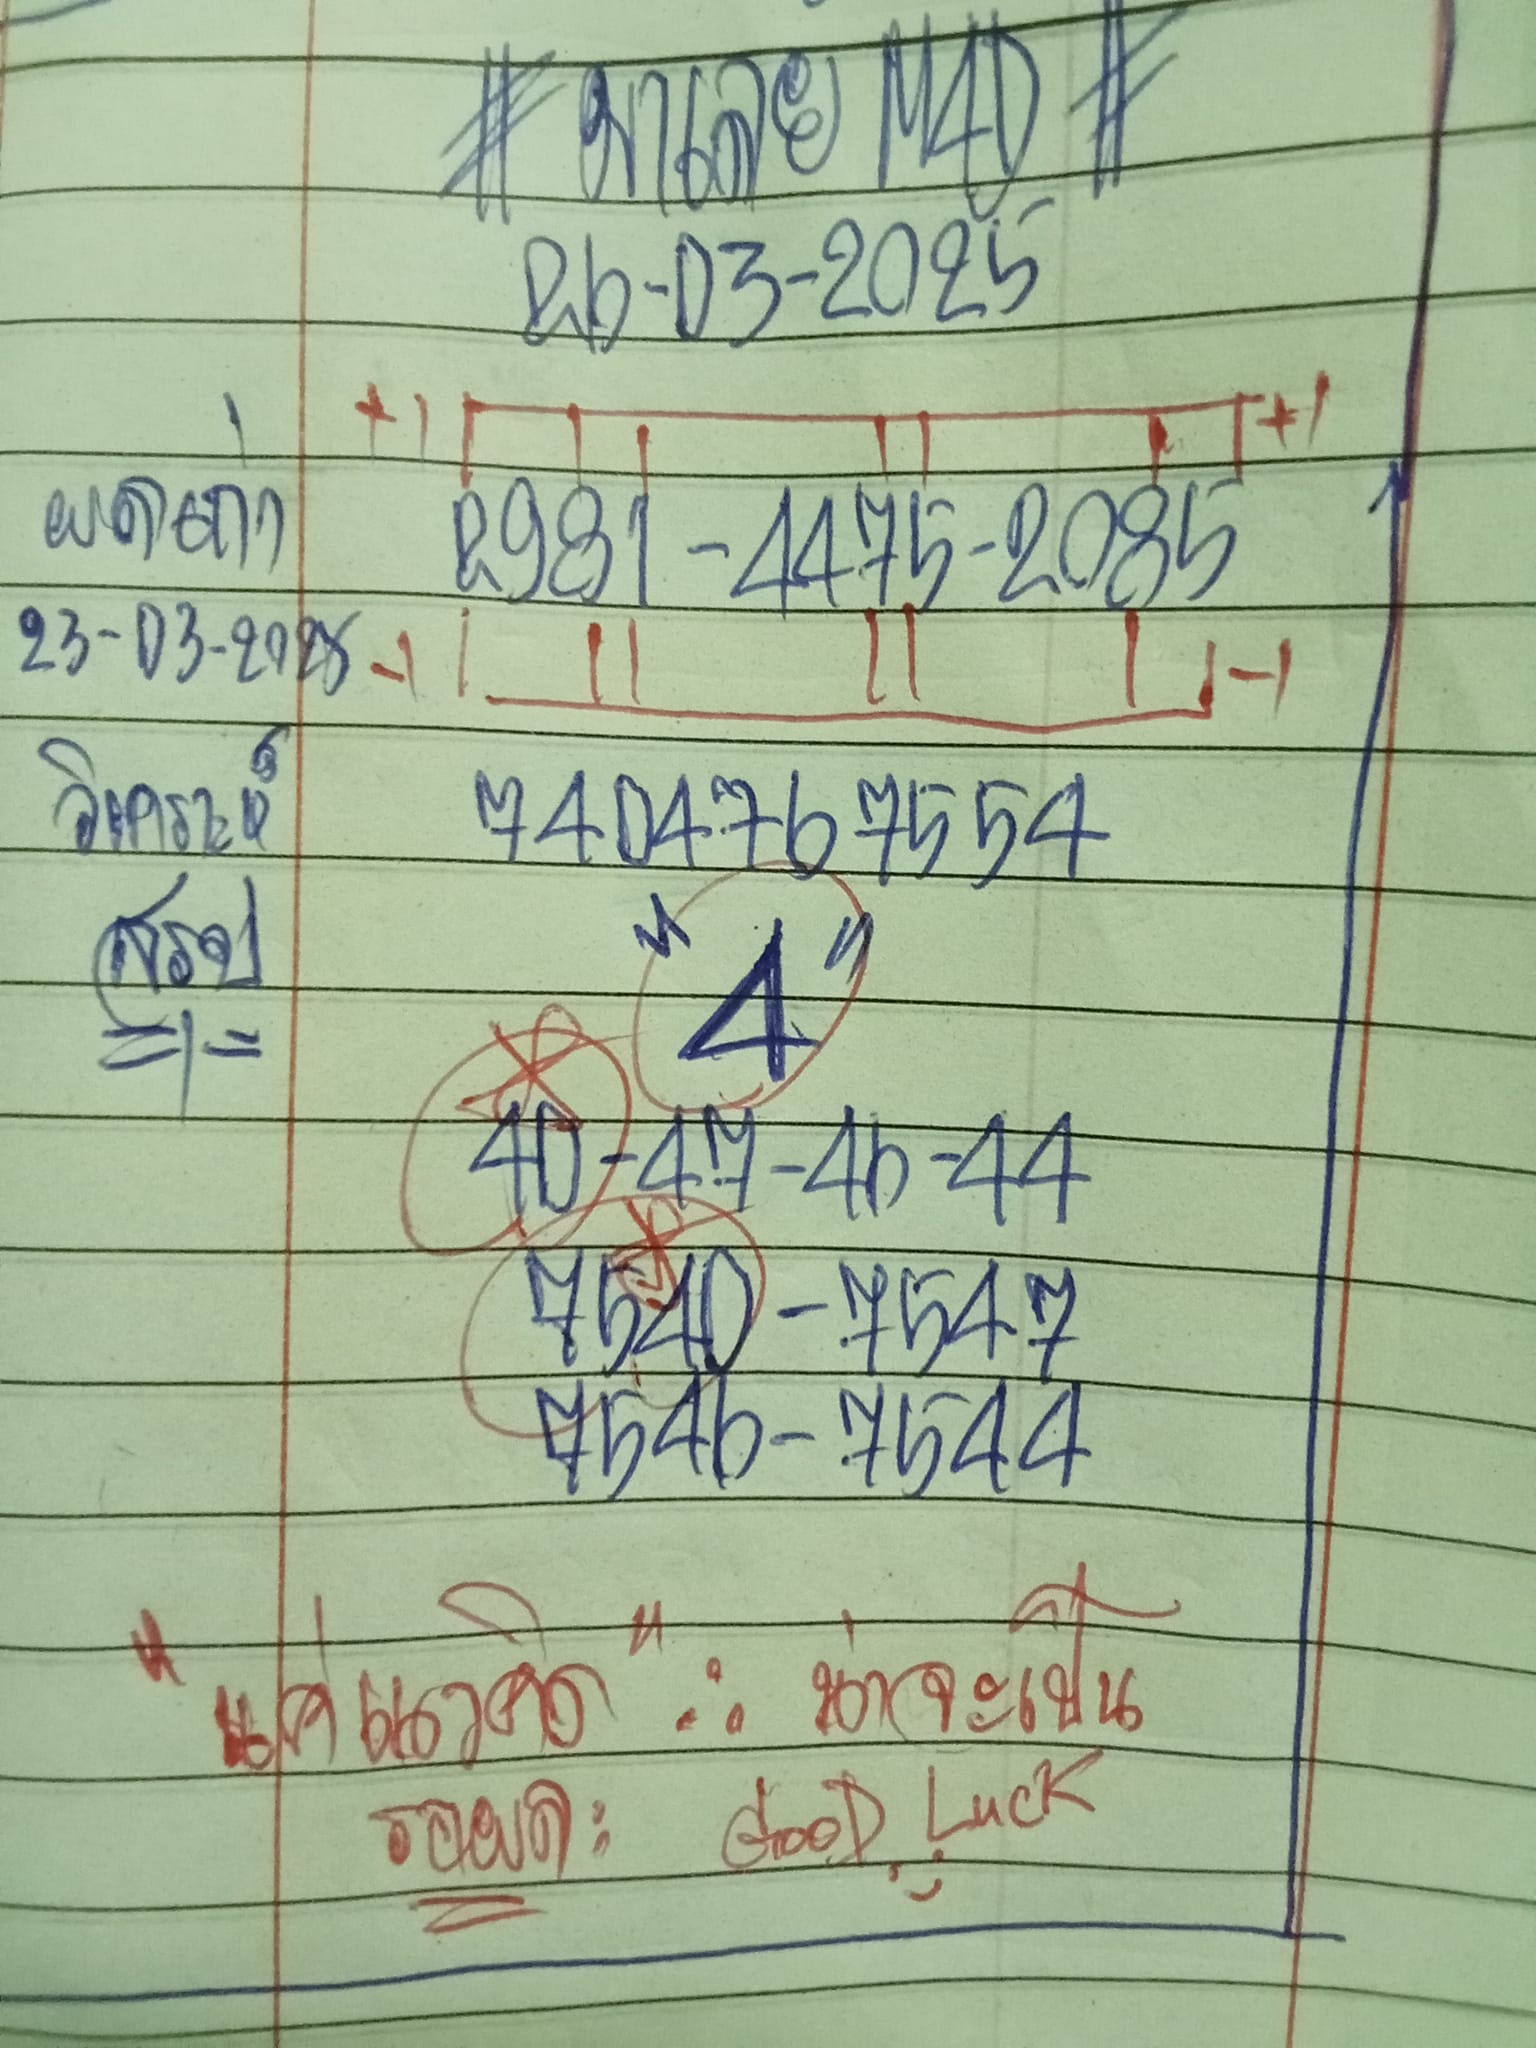 # มาเลย M4D #
26-03-2025
+1 +1
ผลเก่า 2981-4475-2085
23-03-2025 -1 -1
วิเคราะห์ 7404767554
สรุป "4"
40-47-46-44
7540-7547
7546-7544
"แค่แนวคิด" ∴ น่าจะเป็น
รอผล: GooD Luck